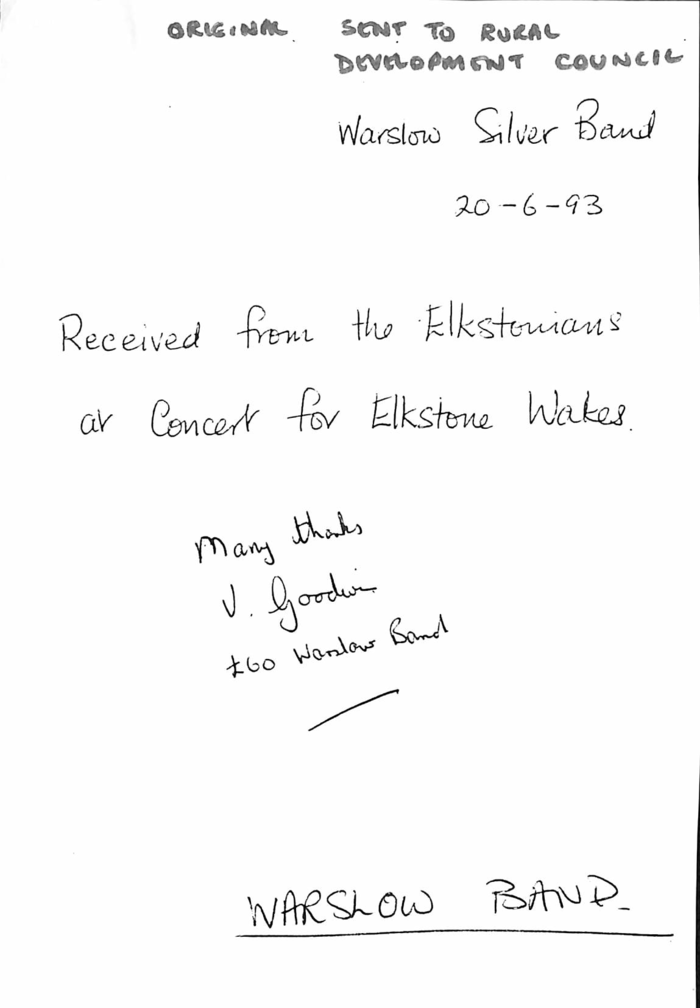 ORIGINAL SENT TO RURAL
DEVELOPMENT COUNCIL
Warslow Silver Band
20-6-93
Received from the Elkstonians
at Concert for Elkstone Wakes.
Many thanks
J. Goodwin
£60 Warslow Band
WARSLOW BAND